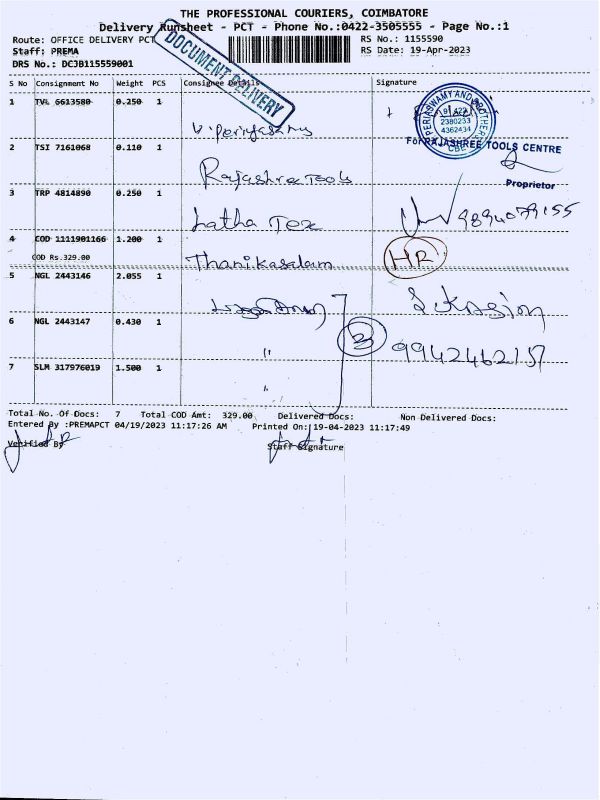 THE PROFESSIONAL COURIERS, COIMBATORE
Delivery Runsheet - PCT - Phone No.:0422-3505555 - Page No.:1
Route: OFFICE DELIVERY PCT RS No.: 1155590
Staff: PREMA RS Date: 19-Apr-2023
DRS No.: DCJB115559001
DOCUMENT DELIVERY
S No Consignment No Weight PCS Consignee Details Signature
1 TVL 6613580 0.250 1
PERIASWAMY AND BROTHERS
2380233
4362434
CBE
2 TSI 7161068 0.110 1 Rajashree Tools
For RAJASHREE TOOLS CENTRE
Proprietor
3 TRP 4814890 0.250 1 Latha Tex 9894079155
4 COD 1111901166 1.200 1 Thanikasalam HR
COD Rs.329.00
5 NGL 2443146 2.055 1
6 NGL 2443147 0.430 1 " 3
7 SLM 317976019 1.500 1 "
Total No. Of Docs: 7 Total COD Amt: 329.00 Delivered Docs: Non Delivered Docs:
Entered By :PREMAPCT 04/19/2023 11:17:26 AM Printed On:19-04-2023 11:17:49
Verified By Staff Signature